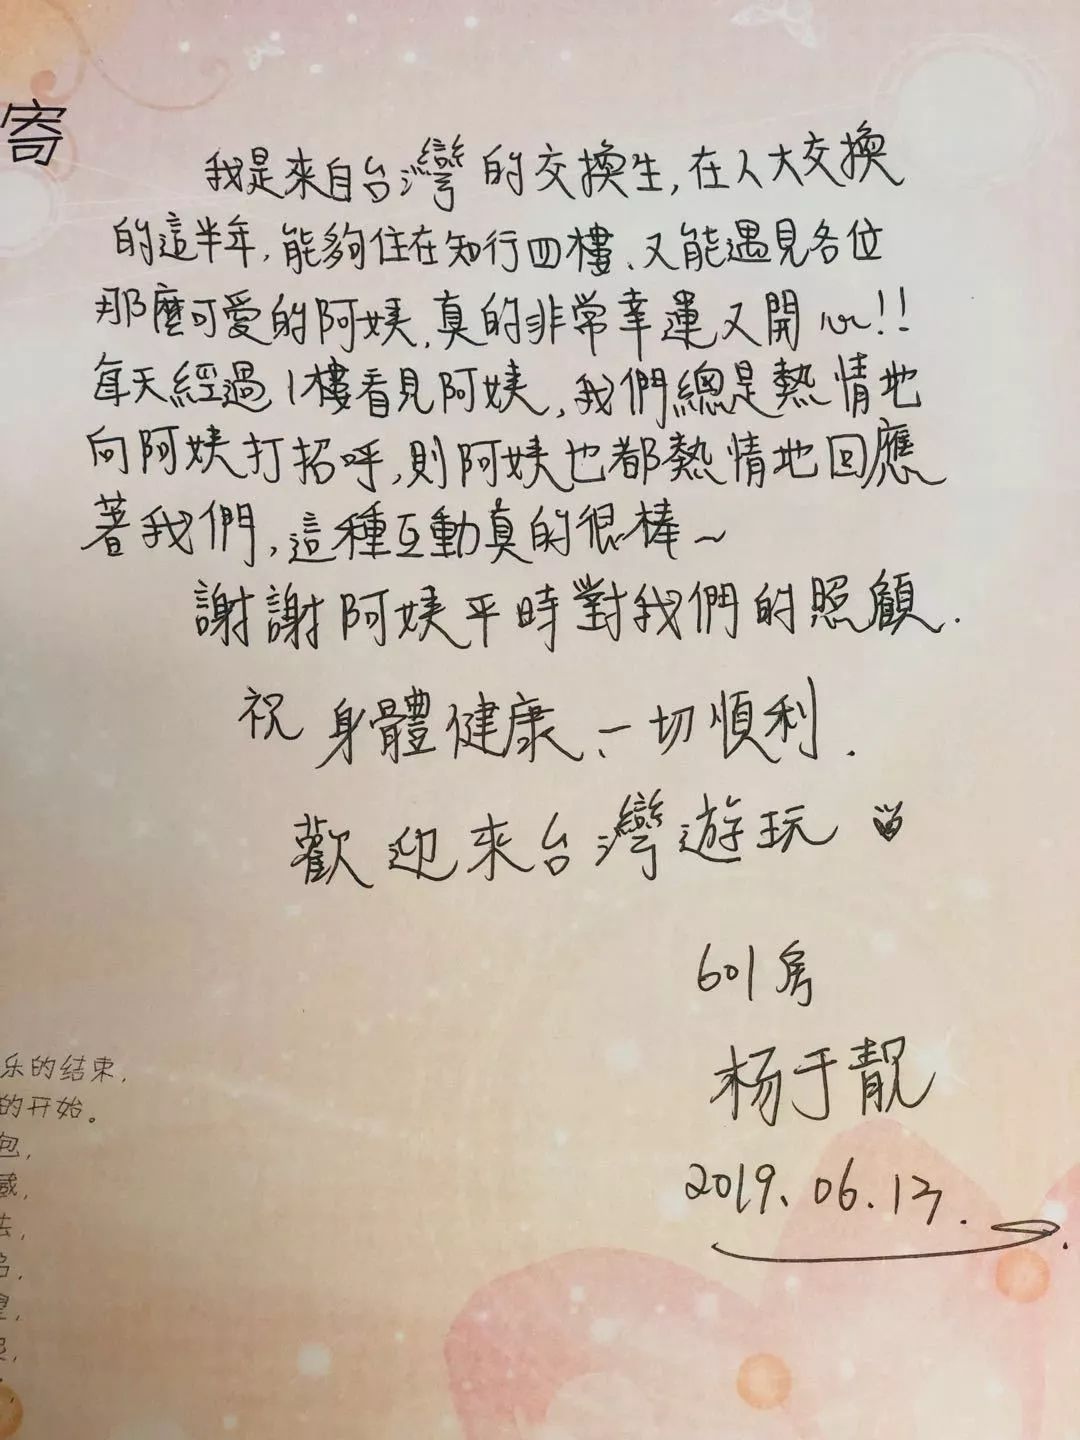 寄
我是來自台灣的交換生,在人大交換
的這半年,能夠住在知行四樓、又能遇見各位
那麼可愛的阿姨,真的非常幸運又開心!!
每天經過1樓看見阿姨,我們總是熱情地
向阿姨打招呼,則阿姨也都熱情地回應
著我們,這種互動真的很棒~
謝謝阿姨平時對我們的照顧.
祝 身體健康、一切順利.
歡迎來台灣遊玩
601房
杨于靚
2019.06.13.
乐的结束,
的开始。
包,
感,
去,